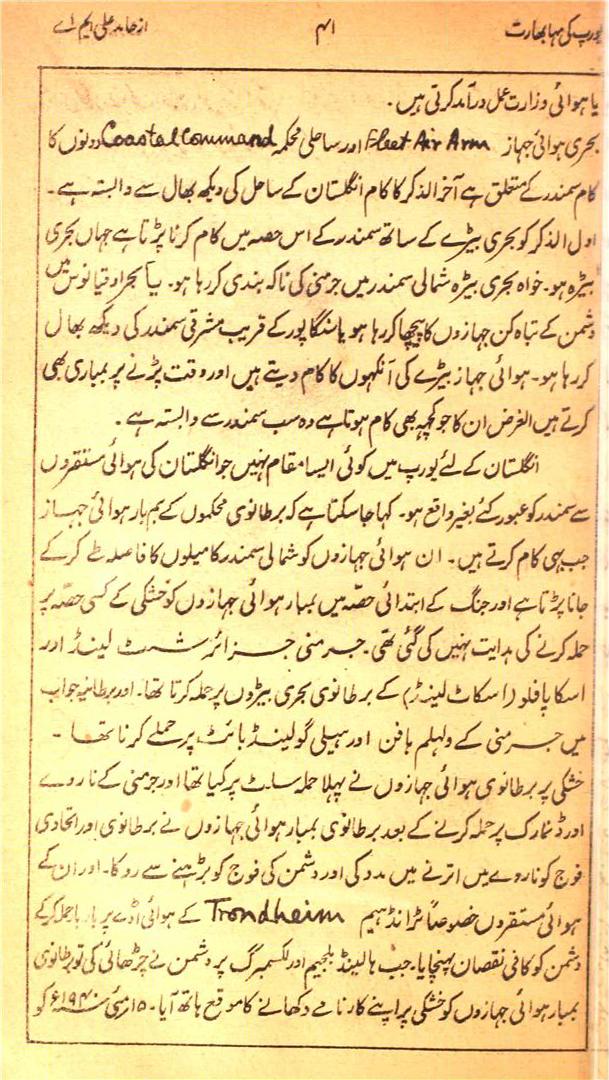 یورپ کی مہابھارت ۴۱ از حامد علی ایم اے
یا ہوائی وزارت عمل درآمد کرتی ہیں۔
بحری ہوائی جہاز Fleet Air Arm اور ساحلی محکمہ Coastal Command دونوں کا
کام سمندر کے متعلق ہے آخرالذکر کا کام انگلستان کے ساحل کی دیکھ بھال سے وابستہ ہے۔
اول الذکر کو بحری بیڑے کے ساتھ سمندر کے اس حصہ میں کام کرنا پڑتا ہے جہاں بحری
بیڑہ ہو۔ خواہ بحری بیڑہ شمالی سمندر میں جرمنی کی ناکہ بندی کر رہا ہو۔ یا بحر اوقیانوس میں
دشمن کے تباہ کن جہازوں کا پیچھا کر رہا ہو یا سنگاپور کے قریب مشرقی سمندر کی دیکھ بھال
کر رہا ہو۔ ہوائی جہاز بیڑے کی آنکہوں کا کام دیتے ہیں اور وقت پڑنے پر بمباری بھی
کرتے ہیں الغرض ان کا جو کچھ بھی کام ہوتا ہے وہ سب سمندر سے وابستہ ہے۔
انگلستان کے لئے یورپ میں کوئی ایسا مقام نہیں جو انگلستان کی ہوائی مستقروں
سے سمندر کو عبور کئے بغیر واقع ہو۔ کہا جا سکتا ہے کہ برطانوی محکموں کے بم بار ہوائی جہاز
جب ہی کام کرتے ہیں۔ ان ہوائی جہازوں کو شمالی سمندر کا میلوں کا فاصلہ طے کر کے
جانا پڑتا ہے اور جنگ کے ابتدائی حصّہ میں بمبار ہوائی جہازوں کو خشکی کے کسی حصّہ پر
حملہ کرنے کی ہدایت نہیں کی گئی تھی۔ جرمنی جزائر شٹ لینڈ اور
اسکاپا فلو (اسکاٹ لینڈ) کے برطانوی بحری بیڑوں پر حملہ کرتا تھا۔ اور برطانیہ جواب
میں جرمنی کے ولہلم ہافن اور ہیلی گولینڈ بائٹ پر حملے کرتا تھا۔
خشکی پر برطانوی ہوائی جہازوں نے پہلا حملہ سلٹ پر کیا تھا اور جرمنی کے ناروے
اور ڈنمارک پر حملہ کرنے کے بعد برطانوی بمبار ہوائی جہازوں نے برطانوی اور اتحادی
فوج کو ناروے میں اترنے میں مدد کی اور دشمن کی فوج کو بڑہنے سے روکا۔ اور ان کے
ہوائی مستقروں خصوصاً ٹرانڈہیم Trondheim کے ہوائی اڈے پر بار بار حملہ کر کے
دشمن کو کافی نقصان پہنچایا۔ جب ہالینڈ بلجیم اور لکسمبرگ پر دشمن نے چڑھائی کی تو برطانوی
بمبار ہوائی جہازوں کو خشکی پر اپنے کارنامے دکھانے کا موقع ہاتھ آیا۔ ۱۵ مئی سنہ ۱۹۴۰ء کو